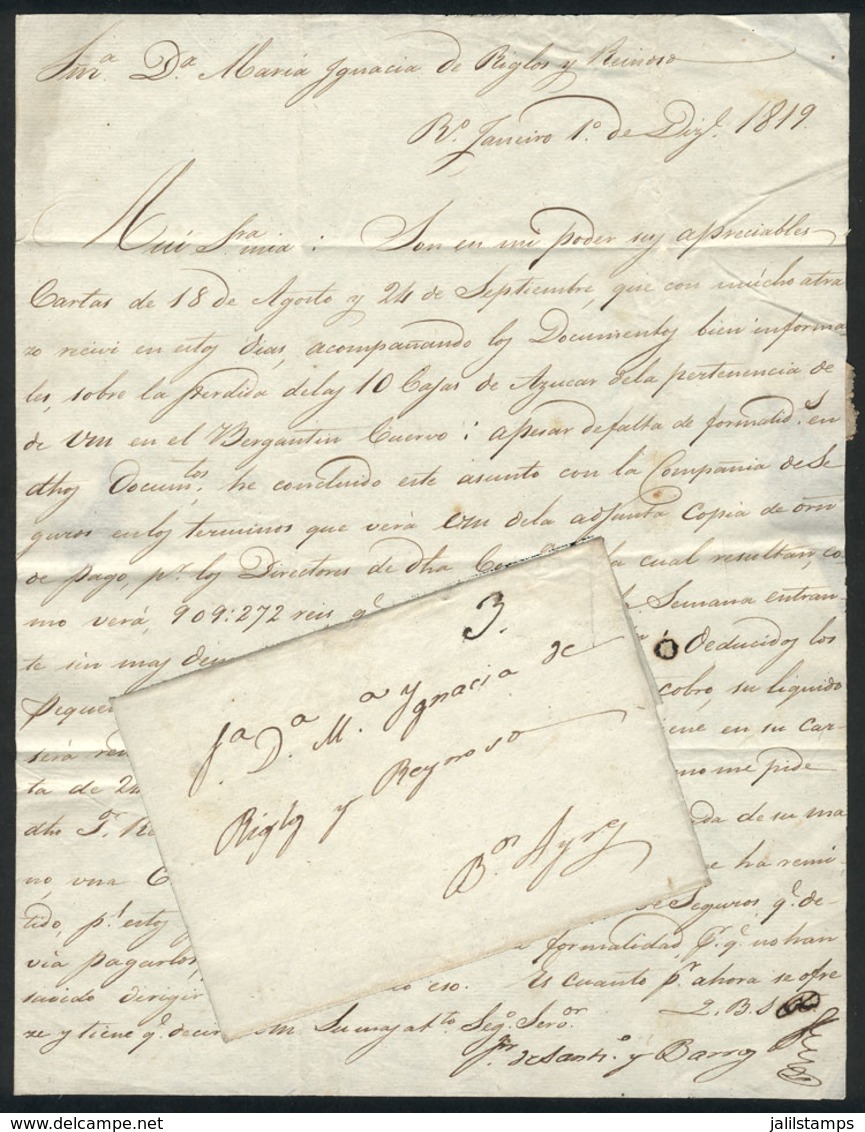 Sra. Da. Maria Ygnacia de Riglos y Reinoso
Ro. Janeiro 1o. de Dize. 1819
Mui Sra mia: Son en mi poder sus apreciables
Cartas de 18 de Agosto y 24 de Septiembre, que con mucho atra
zo recivi en estos dias, acompañando los Documentos bien informa
les, sobre la perdida delas 10 Cajas de Azucar dela pertenencia de
de Vm en el Bergantin Cuervo: apesar defalta de formalids. en
dhos Documtos. he concluido este asunto con la Compañia de Se
guros enlos terminos que verá Vm dela adjunta Copia de orn
de pago, pr. los Directores de dha la cual resultan, co
mo verá, 909:272 reis qe. Semana entran
te sin mas Deducidos los
Peque cobro, su liquido
será iene en su Car
ta de 24 mo me pide
dho da de su ma
no, una e ha remi
tido, pr. estos de Seguros, qe. de
via pagarlos, a formalidad Pr. qe. no han
savido dirigir eso. Es cuanto pr. ahora se ofre
ze y tiene qe. decir Vm Su mas atto. Sego. Seror.
Q. B. S.
de Santo. y Barros
3.
Sa. Da. Ma. Ygnacia de
Riglos y Reynoso
Bos. Ayres
jalilstamps